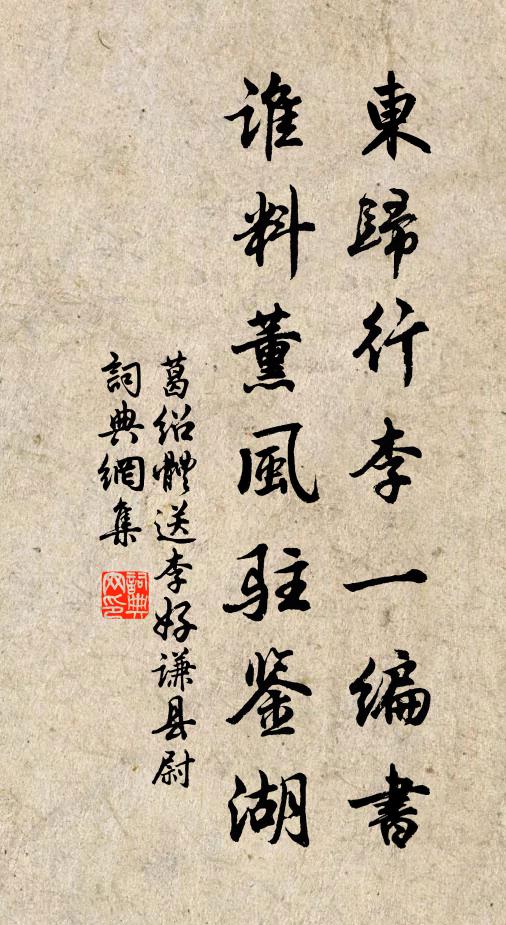 東歸行李一编書
誰料薰風駐鉴湖
葛绍體送李好谦县尉
詞典網集
詞典网印